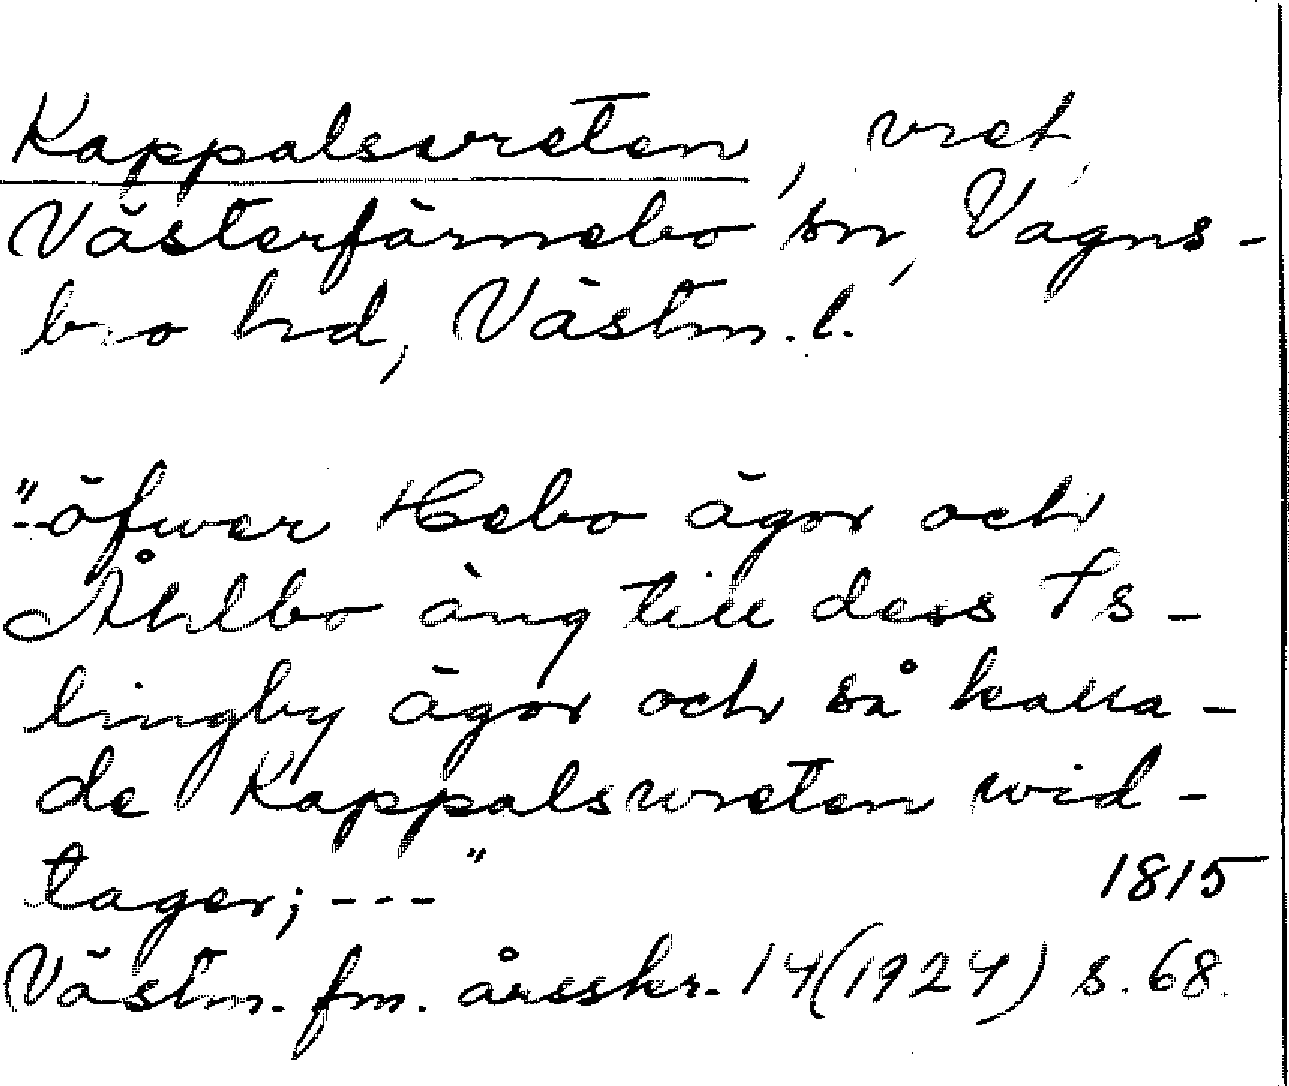 Kappalsvreten, vret,
Västerfärnebo sn, Vagns-
bro hd, Västm. l.
"--öfwer Hebo ägor och
Åhlbo äng till dess Is-
lingby ägor och så kalla-
de Kappalswreten wid-
tager; ---"
1815
Västm. fm. årsskr. 14(1924) s. 68.